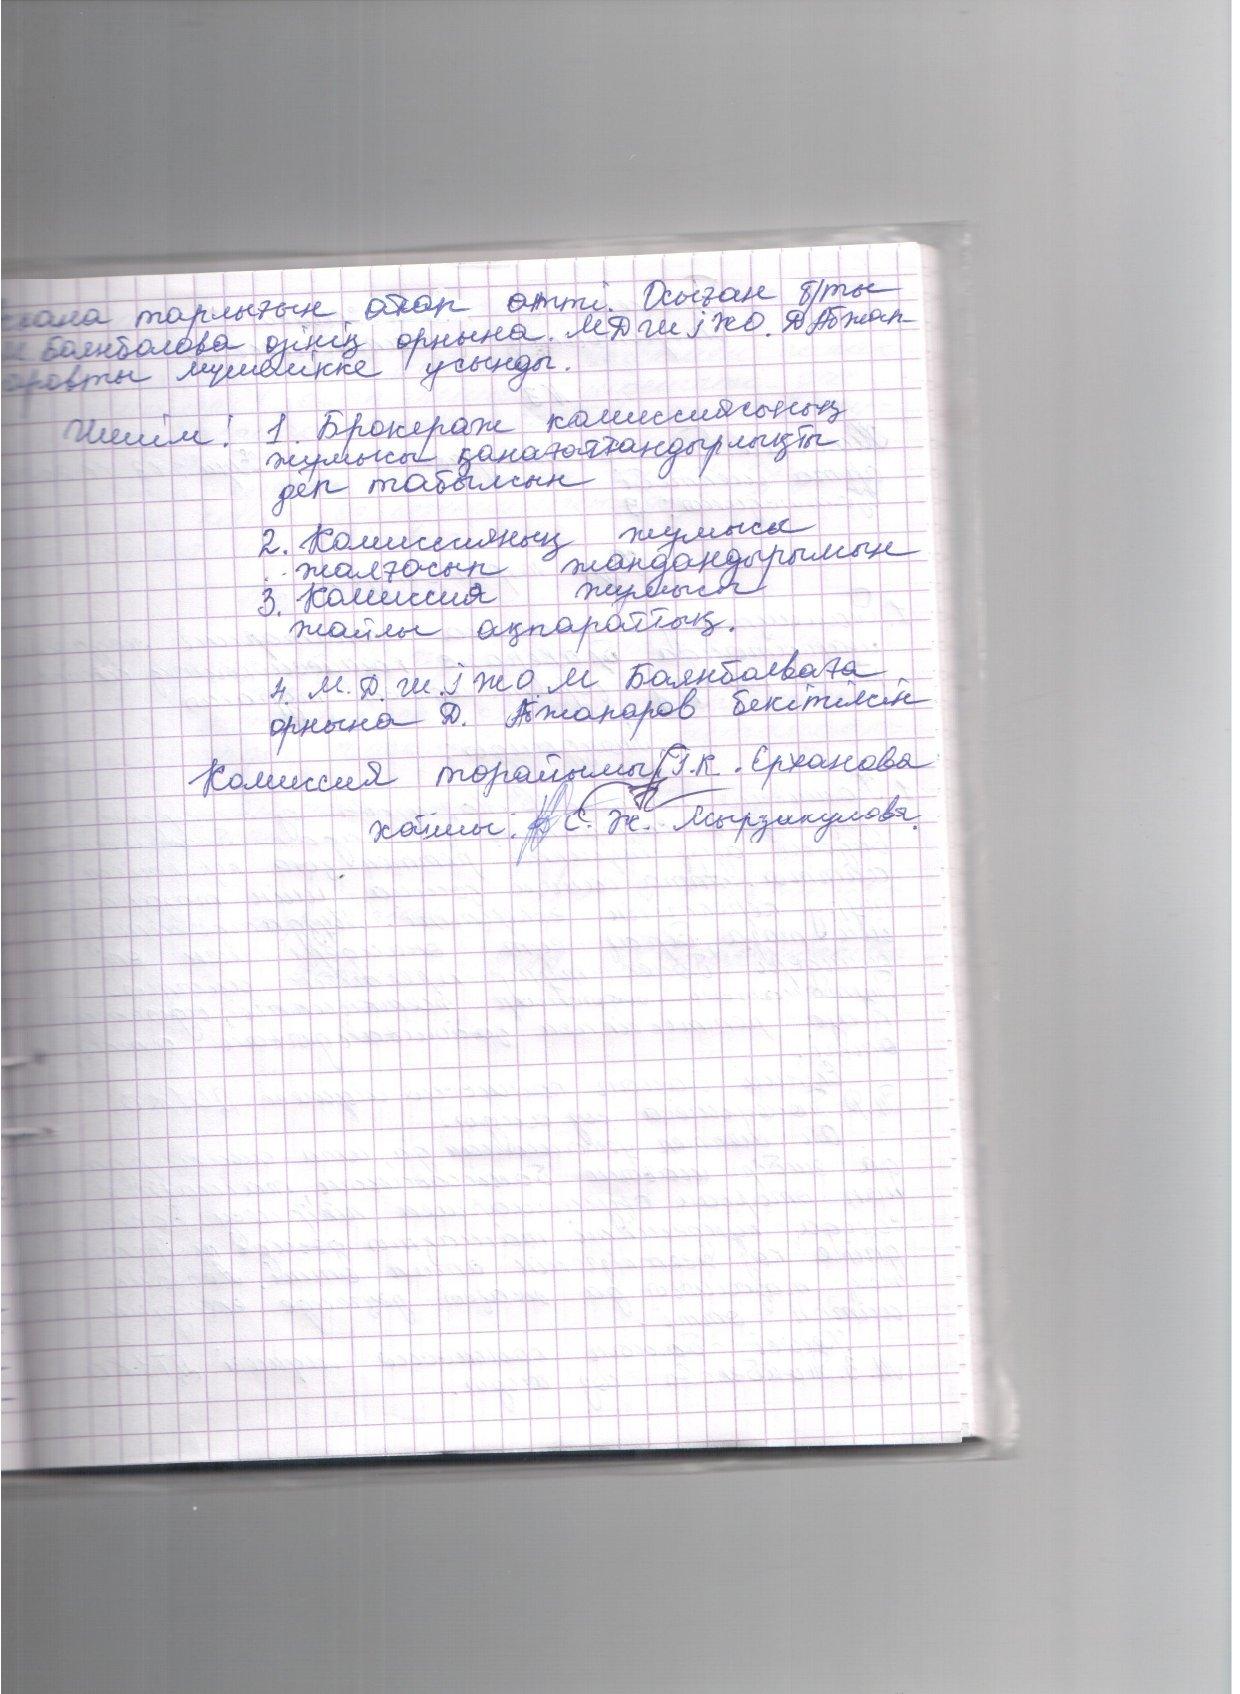 тарлығын атап өтті. Осыған б/ты
М Баянбалова өзінің орнына. МДШІЖО. Д Абжап
аровты мүшелікке ұсынды.
Шешім! 1. Брокераж комиссиясының
жұмысы қанағаттандырлықты
деп табылсын
2. Комиссияның жұмысы
жалғасып жандандырылсын
3. Комиссия жұмысы
жайлы ақпараттың.
4. М.Д.Ш.І ЖО. М Баянбалваға
орнына Д. Абжапаров бекітілсін
Комиссия торайымы Г.К. Ерханова
хатшы: С. Ж. Мырзакулова.